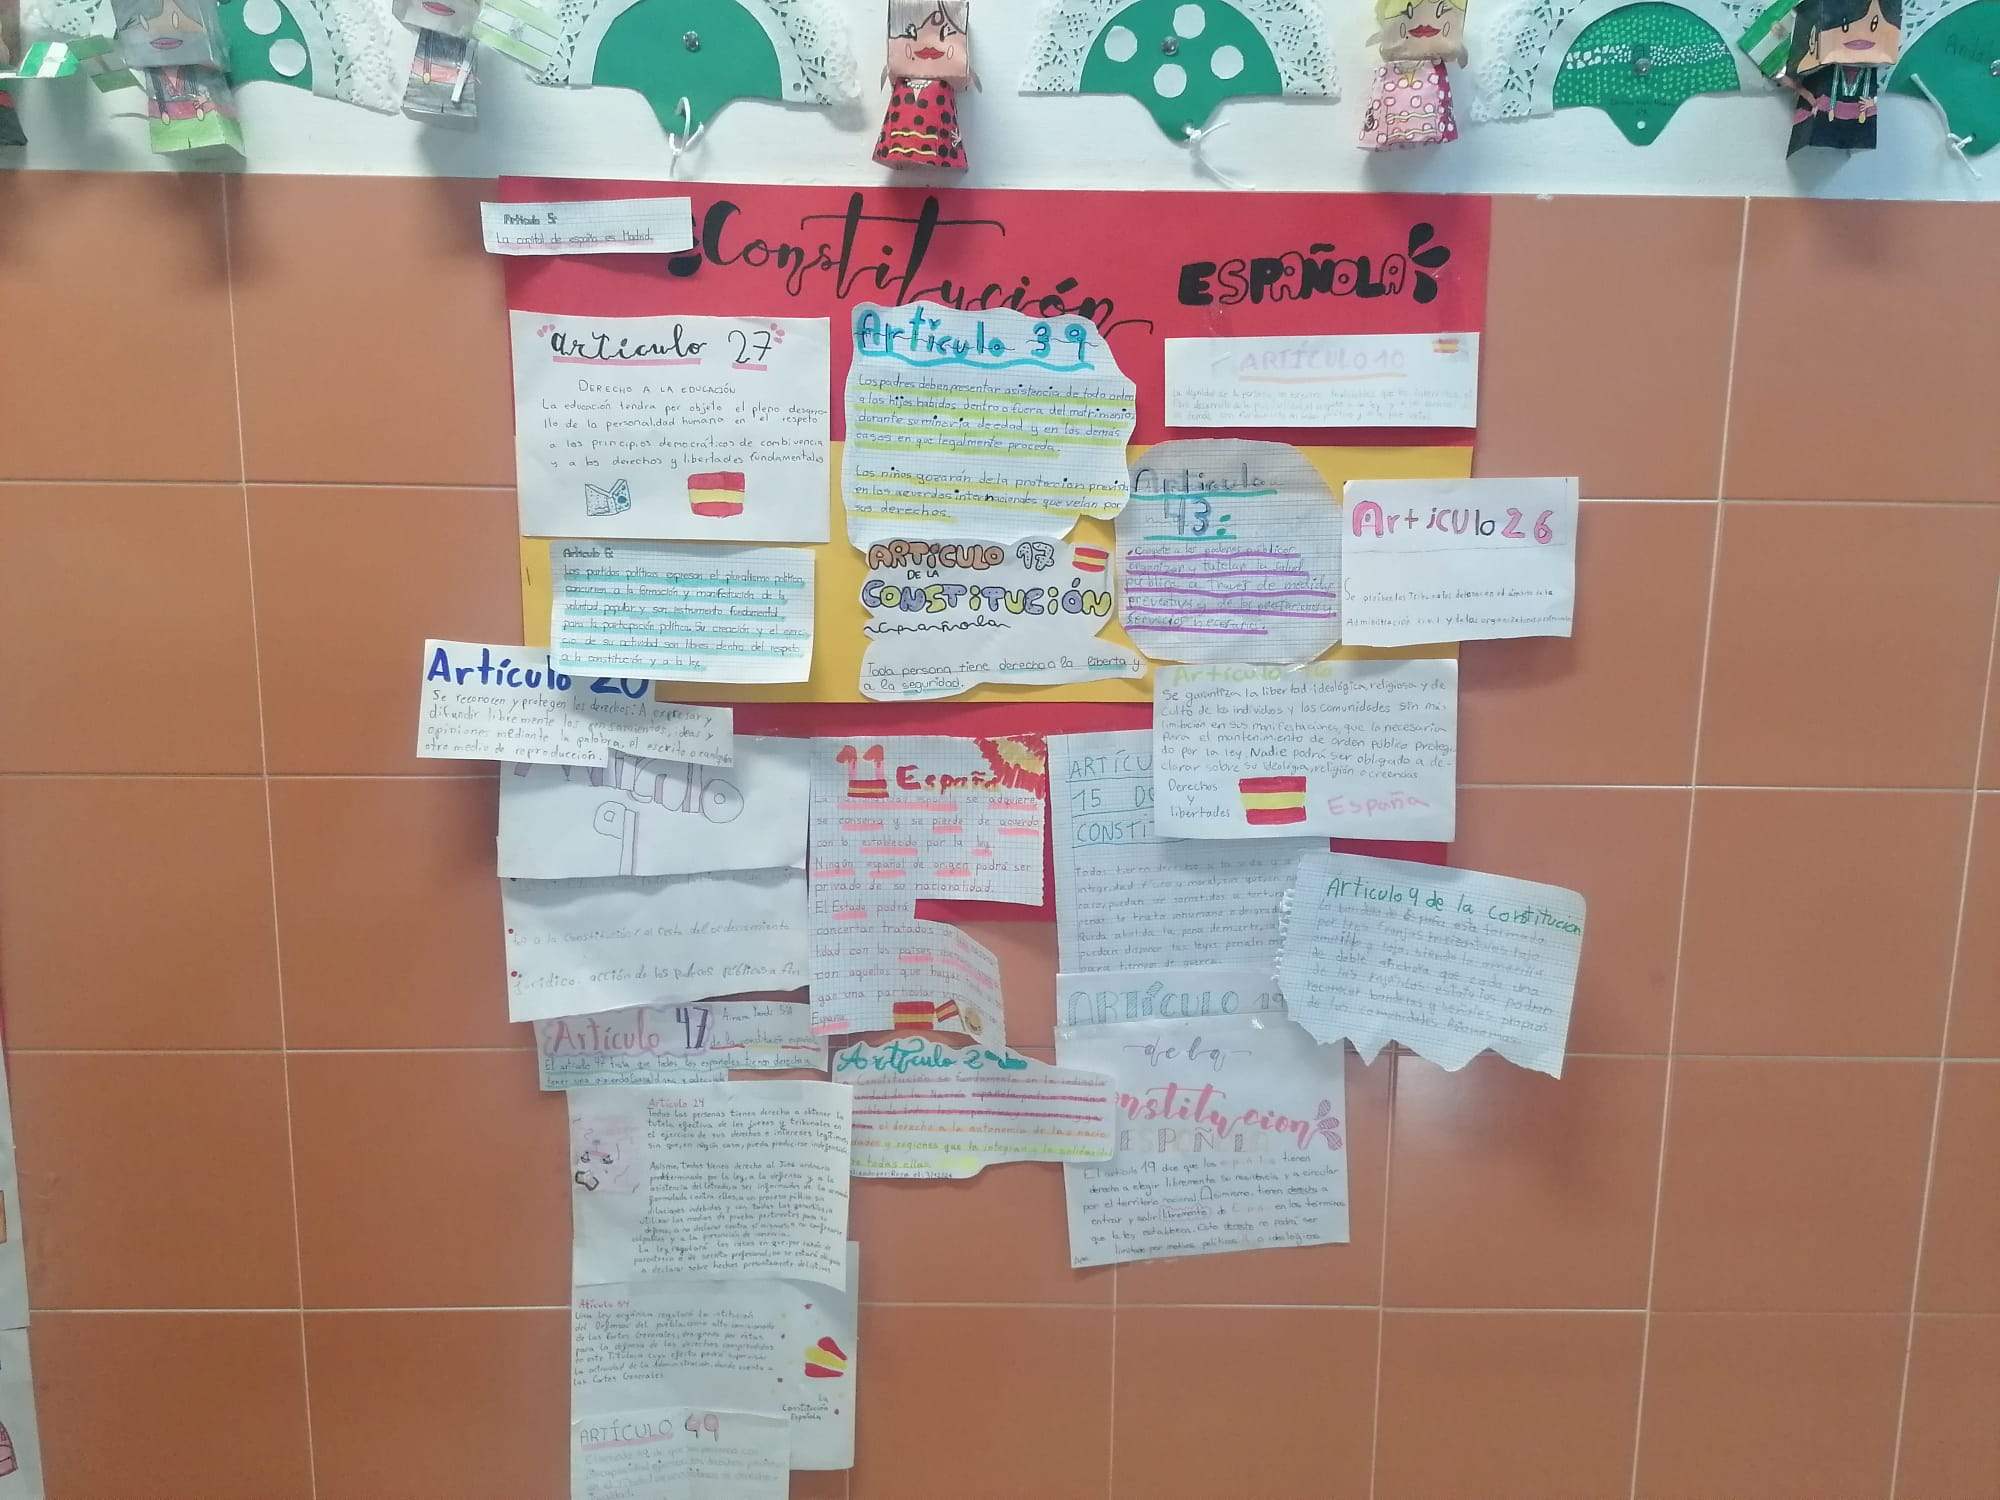 Constitución
ESPAÑOLA
Artículo 5:
La capital de españa es Madrid.
artículo 27
DERECHO A LA EDUCACIÓN
La educación tendra por objeto el pleno desarro-
llo de la personalidad humana en el respeto
a los principios democráticos de combivencia
y a los derechos y libertades fundamentales
Artículo 39
Los padres deben presentar asistencia de todo orden
a los hijos habidos dentro o fuera del matrimonio,
durante su minoría de edad y en los demás
casos en que legalmente proceda.
Los niños gozarán de la protección prevista
en los acuerdos internacionales que velan por
sus derechos.
ARTÍCULO 10
Artículo
43:
Compete a los poderes públicos
organizar y tutelar la salud
pública a través de medidas
preventivas y de las prestaciones y
servicios necesarios.
Artículo 26
Se prohíben los Tribunales de honor en el ámbito de la
Administración civil y de las organizaciones profesionales
Artículo 6:
Los partidos políticos expresan el pluralismo político,
concurren a la formación y manifestación de la
voluntad popular y son instrumento fundamental
para la participación política. Su creación y el ejerc-
cio de su actividad son libres dentro del respeto
a la constitución y a la ley.
ARTÍCULO 17
DE LA
CONSTITUCIÓN
española
Toda persona tiene derecho a la liberta y
a la seguridad.
Artículo 20
Se reconocen y protegen los derechos: A expresar y
difundir libremente los pensamientos, ideas y
opiniones mediante la palabra, el escrito o cualquier
otro medio de reproducción.
Artículo
Se garantiza la libertad ideológica, religiosa y de
culto de los individuos y las comunidades sin más
limitación, en sus manifestaciones, que la necesaria
para el mantenimiento de orden público protegi-
do por la ley. Nadie podrá ser obligado a de-
clarar sobre su ideología, religión o creencias
Derechos
y
libertades
España
Artículo
9
tos a la Constitución y al resto del ordenamiento
jurídico. acción de los poderes públicos a fin
11 España
La nacionalidad española se adquiere,
se conserva y se pierde de acuerdo
con lo establecido por la ley.
Ningún español de origen podrá ser
privado de su nacionalidad.
El Estado podrá
concertar tratados de
dad con los países
con aquellos que hayan
gan una particular
España.
ARTÍCU
15 DE
CONSTIT
Todos tienen derecho a la vida y a
integridad física y moral, sin que, en
caso, puedan ser sometidos a tortura
penas o trato inhumano o degrada
Queda abolida la pena de muerte,
puedan disponer las leyes penales
para tiempos de guerra.
Artículo 4 de la Constitucion
La bandera de España esta formada
por tres franjas horizontales, roja
amarilla y roja, siendo la amarilla
de doble anchura que cada una
de las rojas. Los estatutos podrán
reconocer banderas y señales propias
de las comunidades Autónomas.
Artículo 47
de la constitución española
El artículo 47 trata que todos los españoles tienen derecho a
tener una vivienda digna y adecuada
Artículo 2
Constitución se fundamenta en la indisolu
unidad de la Nación española, patria común
el derecho a la autonomía de las nacio
dades y regiones que la integran y la solidaridad
todas ellas.
ARTÍCULO 19
de la
Constitucion
ESPAÑOLA
El artículo 19 dice que los españoles tienen
derecho a elegir libremente su residencia y a circular
por el territorio nacional. Asimismo, tienen derecho a
entrar y salir libremente de España en los términos
que la ley establezca. Este derecho no podrá ser
limitado por motivos políticos o ideológicos
Artículo 24
Todas las personas tienen derecho a obtener la
tutela efectiva de los jueces y tribunales en
el ejercicio de sus derechos e intereses legítimos,
sin que, en ningún caso, pueda producirse indefensión
Asismo, Todos tienen derecho al Juez ordinario
predeterminado por la ley, a la defensa y a la
asistencia de letrado, a ser informados de la acusación
formulada contra ellos, a un proceso público sin
dilaciones indebidas y con todas las garantías, a
utilizar los medios de prueba pertinentes para su
defensa, a no declarar contra sí mismos, a no confesarse
culpables y a la presunción de inocencia.
La ley regulará los casos en que, por razón de
parentesco o de secreto profesional, no se estará obligado
a declarar sobre hechos presuntamente delictivos
Artículo 54
Una ley orgánica regulará la institución
del Defensor del pueblo, como alto comisionado
de las Cortes Generales, designado por éstas
para la defensa de los derechos comprendidos
en este Título, a cuyo efecto podrá supervisar
la actividad de la Administración, dando cuenta a
las Cortes Generales.
La
Constitución
Española
ARTÍCULO 49